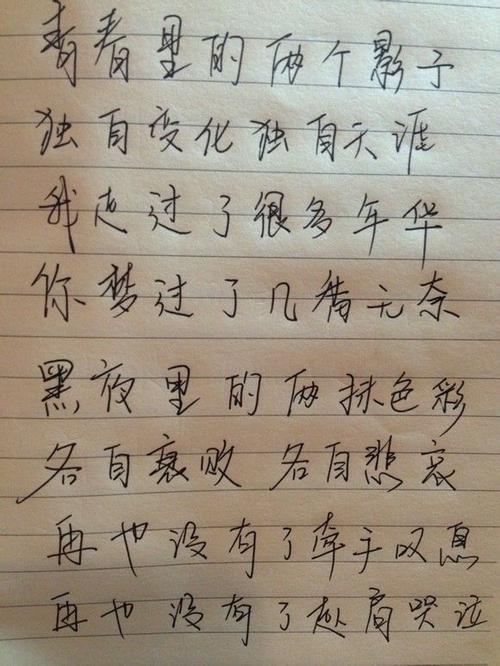 青春里的两个影子
独自变化独自天涯
我走过了很多年华
你梦过了几番无奈
黑夜里的两抹色彩
各自衰败 各自悲哀
再也没有了牵手叹息
再也没有了肩哭泣